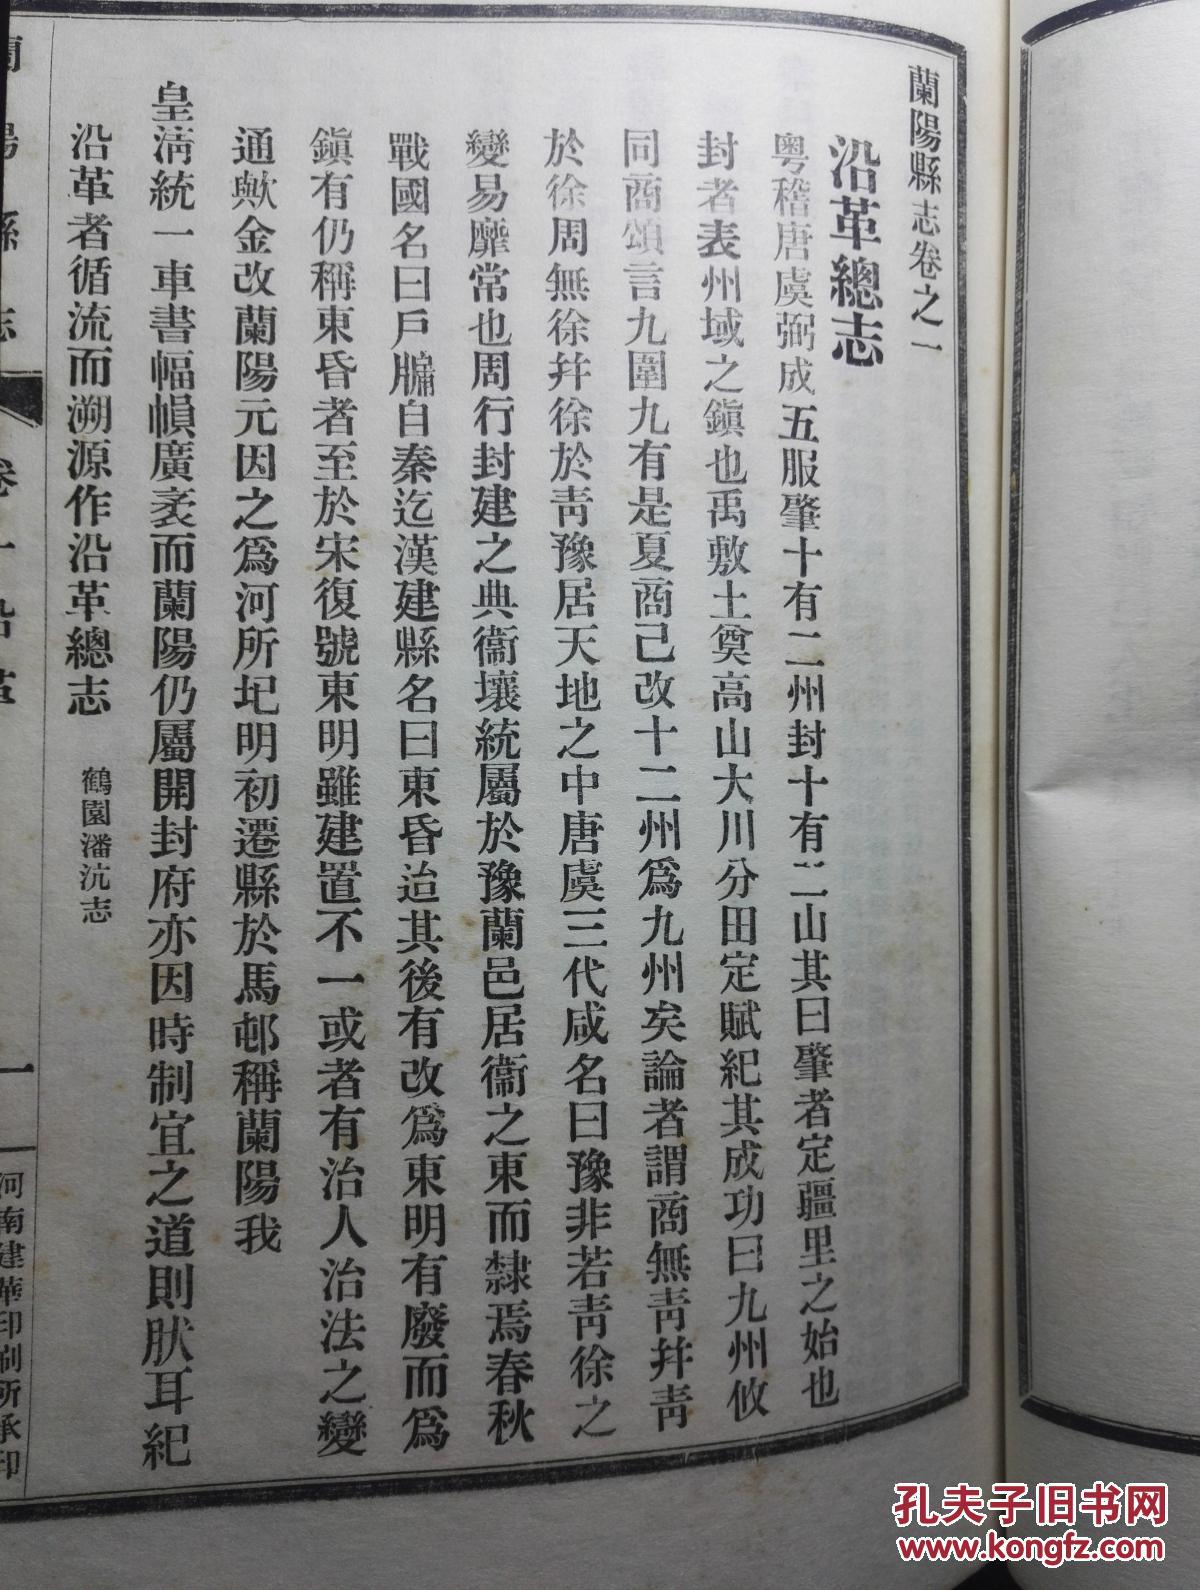 蘭陽縣志卷之一
沿革總志
粤稽唐虞弼成五服肇十有二州封十有二山其曰肇者定疆里之始也
封者表州域之鎭也禹敷土奠高山大川分田定賦紀其成功曰九州攸
同商頌言九圍九有是夏商已改十二州爲九州矣論者謂商無靑幷靑
於徐周無徐幷徐於靑豫居天地之中唐虞三代咸名曰豫非若靑徐之
變易靡常也周行封建之典衞壤統屬於豫蘭邑居衞之東而隸焉春秋
戰國名曰戶牖自秦迄漢建縣名曰東昏迨其後有改爲東明有廢而爲
鎭有仍稱東昏者至於宋復號東明雖建置不一或者有治人治法之變
通歟金改蘭陽元因之爲河所圮明初遷縣於馬邨稱蘭陽我
皇淸統一車書幅幀廣袤而蘭陽仍屬開封府亦因時制宜之道則肰耳紀
沿革者循流而溯源作沿革總志 鶴園潘沆志
蘭陽縣志 卷一沿革 一 河南建華印刷所承印
孔夫子旧书网
www.kongfz.com